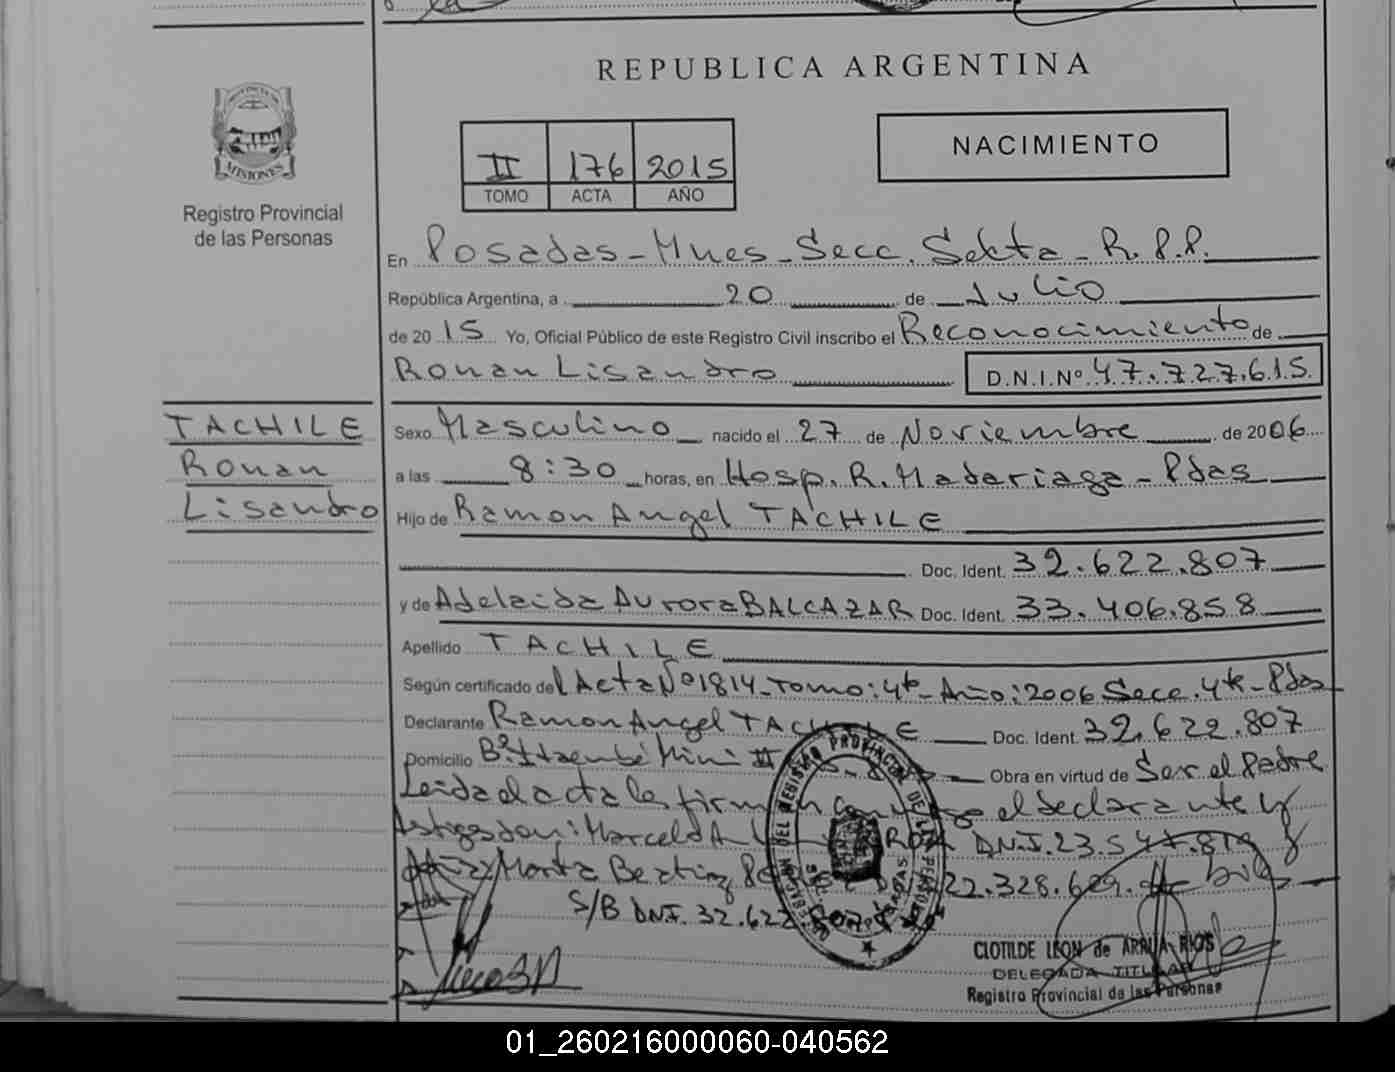 REPUBLICA ARGENTINA
PROVINCIA DE
MISIONES
Registro Provincial
de las Personas
NACIMIENTO
II 176 2015
TOMO ACTA AÑO
En Posadas - Mnes - Secc. Sexta - R.P.P.
República Argentina, a 20 de Julio
de 2015 Yo, Oficial Público de este Registro Civil inscribo el Reconocimiento de
Ronan Lisandro D.N.I.Nº 47.727.615
TACHILE
Ronan
Lisandro
Sexo Masculino nacido el 27 de Noviembre de 2006
a las 8:30 horas, en Hosp. R. Madariaga - Pdas
Hijo de Ramon Angel TACHILE
Doc. Ident. 32.622.807
y de Adelaida Aurora BALCAZAR Doc. Ident. 33.406.858
Apellido TACHILE
Según certificado del Acta Nº 1814 - Tomo: 4º - Año: 2006 Secc. 4ta - Pdas
Declarante Ramon Angel TACHILE Doc. Ident. 32.622.807
Domicilio Bº Itaembé Mini II Obra en virtud de Ser el Padre
Leida el acta la firman conmigo el declarante y
testigos son: Marcelo A. DNI. 23.547.819 y
Marta Beatriz 22.328.629.
S/B DNI. 32.622.807
CLOTILDE LEON de ARRUA RIOS
DELEGADA TITULAR
Registro Provincial de las Personas
01_260216000060-040562